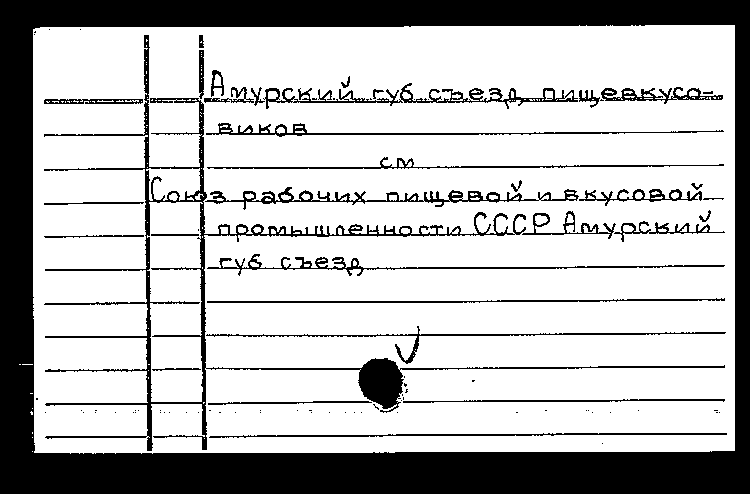 Амурский губ съезд пищевкусо-
виков
см
Союз рабочих пищевой и вкусовой
промышленности СССР Амурский
губ съезд